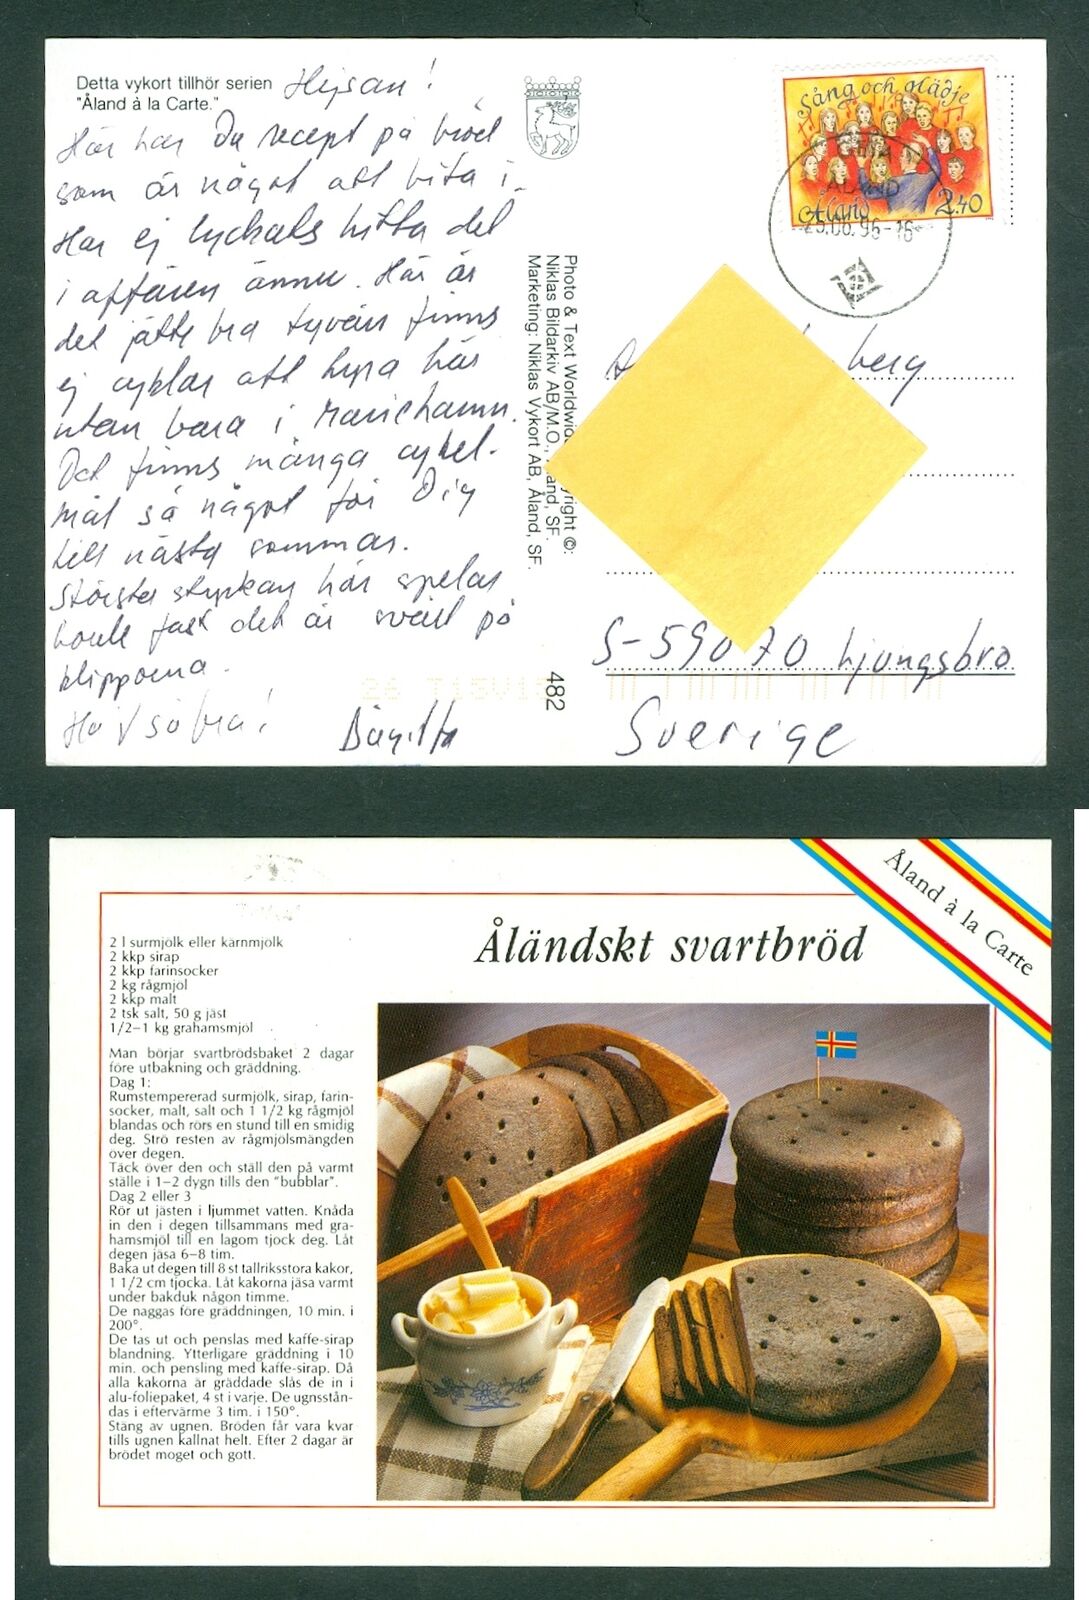 Detta vykort tillhör serien
"Åland à la Carte."
Hejsan!
Här har Du recept på bröd
som är något att bita i.
Har ej lyckats hitta det
i affären ännu. Här är
det jätte bra tyvärr finns
ej cyklar att hyra här
utan bara i Mariehamn.
Det finns många cykel-
mål så något för Dig
till nästa sommar.
Största styrkan här spelar
boule fast det är svårt på
klipporna.
Ha d så bra!
Birgitta
Photo & Text Worldwid yright ©:
Niklas Bildarkiv AB/M.O., land, SF.
Marketing: Niklas Vykort AB, Åland, SF.
482
Sång och glädje
Åland 2.40
ÅLAND
25.06.96-16
berg
S-59070 Ljungsbro
Sverige
Åland à la Carte
Åländskt svartbröd
2 l surmjölk eller kärnmjölk
2 kkp sirap
2 kkp farinsocker
2 kg rågmjöl
2 kkp malt
2 tsk salt, 50 g jäst
1/2–1 kg grahamsmjöl
Man börjar svartbrödsbaket 2 dagar
före utbakning och gräddning.
Dag 1:
Rumstempererad surmjölk, sirap, farin-
socker, malt, salt och 1 1/2 kg rågmjöl
blandas och rörs en stund till en smidig
deg. Strö resten av rågmjölsmängden
över degen.
Täck över den och ställ den på varmt
ställe i 1–2 dygn tills den "bubblar".
Dag 2 eller 3
Rör ut jästen i ljummet vatten. Knåda
in den i degen tillsammans med gra-
hamsmjöl till en lagom tjock deg. Låt
degen jäsa 6–8 tim.
Baka ut degen till 8 st tallriksstora kakor,
1 1/2 cm tjocka. Låt kakorna jäsa varmt
under bakduk någon timme.
De naggas före gräddningen, 10 min. i
200°.
De tas ut och penslas med kaffe-sirap
blandning. Ytterligare gräddning i 10
min. och pensling med kaffe-sirap. Då
alla kakorna är gräddade slås de in i
alu-foliepaket, 4 st i varje. De ugnsstån-
das i eftervärme 3 tim. i 150°.
Stäng av ugnen. Bröden får vara kvar
tills ugnen kallnat helt. Efter 2 dagar är
brödet moget och gott.